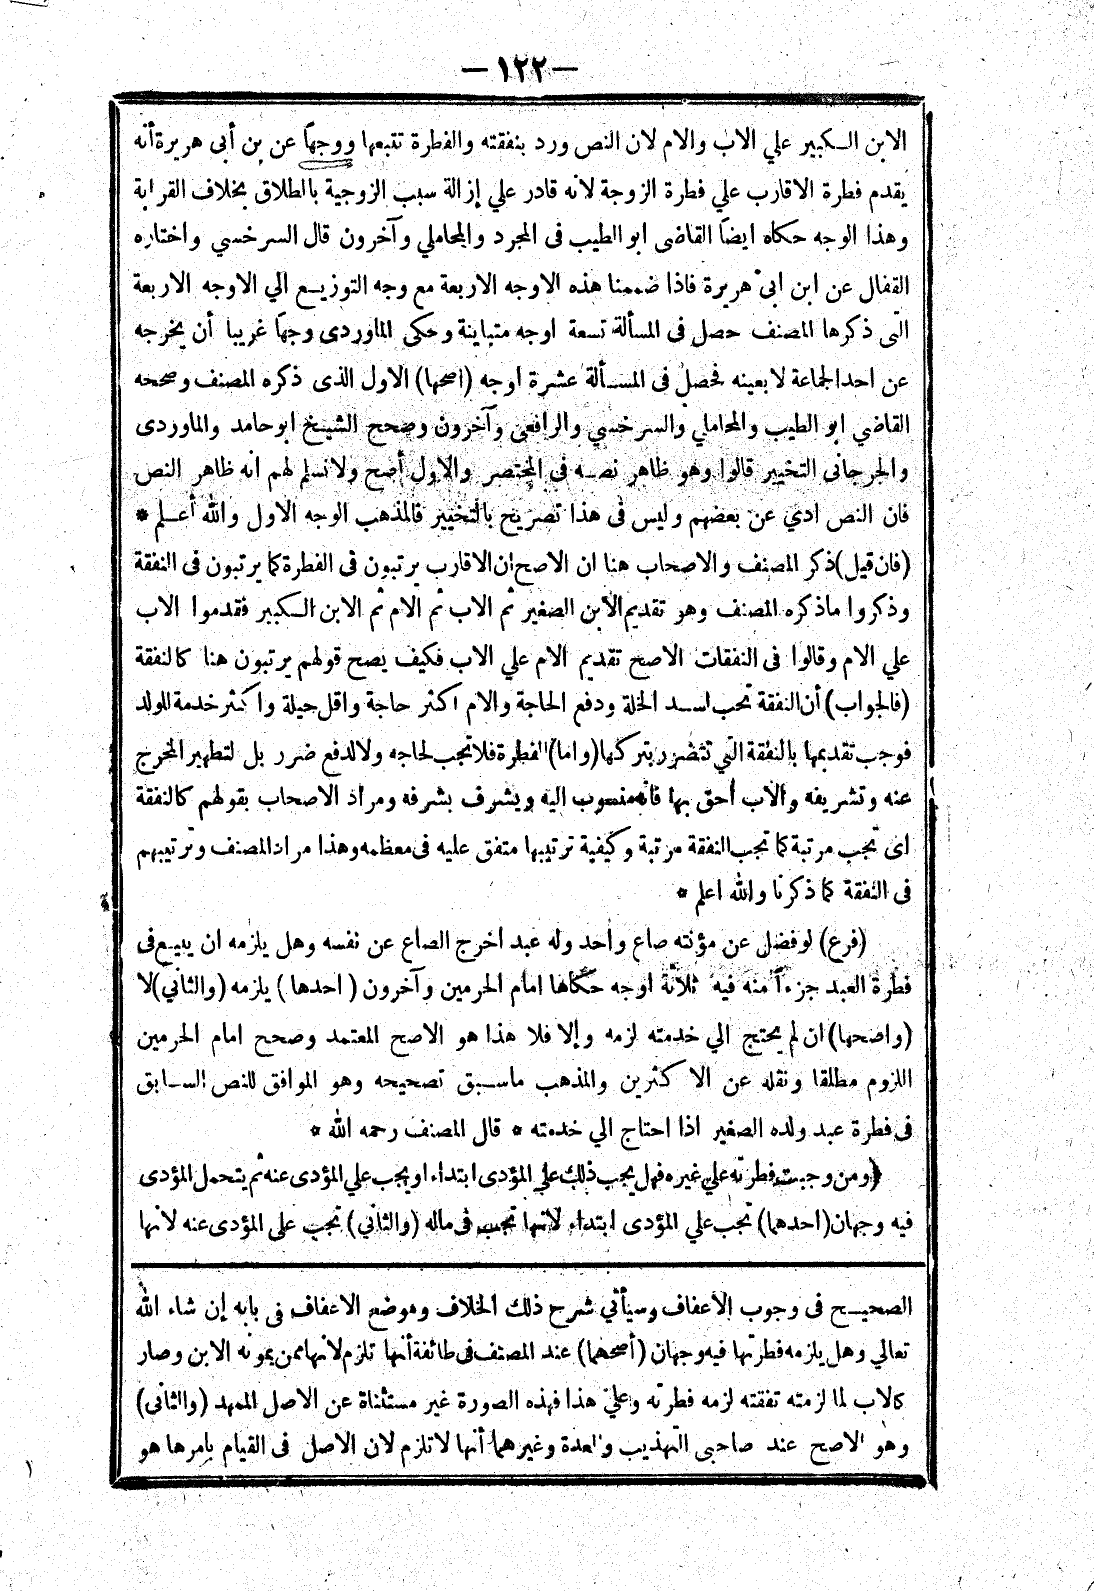 — ١٢٢ —
الابن الكبير علي الاب والام لان النص ورد بنفقته والفطرة تتبعها ووجهاً عن بن أبى هريرة أنه
يقدم فطرة الاقارب علي فطرة الزوجة لانه قادر علي إزالة سبب الزوجية بالطلاق بخلاف القرابة
وهذا الوجه حكاه ايضاً القاضى ابو الطيب فى المجرد والمحاملي وآخرون قال السرخسي واختاره
القفال عن ابن ابى هريرة فاذا ضممنا هذه الاوجه الاربعة مع وجه التوزيع الي الاوجه الاربعة
التى ذكرها المصنف حصل فى المسألة تسعة اوجه متباينة وحكى الماوردى وجهاً غريبا أن يخرجه
عن احد الجماعة لا بعينه فحصل فى المسألة عشرة اوجه (اصحها) الاول الذى ذكره المصنف وصححه
القاضي ابو الطيب والمحاملي والسرخسي والرافعى وآخرون وصحح الشيخ ابو حامد والماوردى
والجرجانى التخيير قالوا وهو ظاهر نصه فى المختصر والاول أصح ولا نسلم لهم انه ظاهر النص
فان النص ادي عن بعضهم وليس فى هذا تصريح بالتخيير فالمذهب الوجه الاول والله أعلم *
(فان قيل) ذكر المصنف والاصحاب هنا ان الاصح ان الاقارب يرتبون فى الفطرة كما يرتبون فى النفقة
وذكروا ما ذكره المصنف وهو تقديم الابن الصغير ثم الاب ثم الام ثم الابن الكبير فقدموا الاب
علي الام وقالوا فى النفقات الاصح تقديم الام علي الاب فكيف يصح قولهم يرتبون هنا كالنفقة
(فالجواب) أن النفقة تجب لسد الخلة ودفع الحاجة والام اكثر حاجة واقل حيلة واكثر خدمة للولد
فوجب تقديمها بالنفقة التي تتضرر بتركها (واما) الفطرة فلا تجب لحاجه ولا لدفع ضرر بل لتطهير المخرج
عنه وتشريفه والاب أحق بها فانه منسوب اليه ويشرف بشرفه ومراد الاصحاب بقولهم كالنفقة
اى تجب مرتبة كما تجب النفقة مرتبة وكيفية ترتيبها متفق عليه فى معظمه وهذا مراد المصنف وترتيبهم
فى النفقة كما ذكرنا والله اعلم *
(فرع) لو فضل عن مؤنته صاع واحد وله عبد اخرج الصاع عن نفسه وهل يلزمه ان يبيع فى
فطرة العبد جزءاً منه فيه ثلاثة اوجه حكاها امام الحرمين وآخرون (احدها) يلزمه (والثاني) لا
(واصحها) ان لم يحتج الي خدمته لزمه وإلا فلا هذا هو الاصح المعتمد وصحح امام الحرمين
اللزوم مطلقا ونقله عن الاكثرين والمذهب ماسبق تصحيحه وهو الموافق للنص السابق
فى فطرة عبد ولده الصغير اذا احتاج الي خدمته * قال المصنف رحمه الله *
﴿ومن وجبت فطرته علي غيره فهل يجب ذلك علي المؤدى ابتداء او يجب علي المؤدى عنه ثم يتحمل المؤدى
فيه وجهان (احدهما) تجب علي المؤدى ابتداء لانها تجب فى ماله (والثاني) تجب على المؤدى عنه لانها
الصحيح فى وجوب الاعفاف وسيأتي شرح ذلك الخلاف وموضع الاعفاف فى بابه إن شاء الله
تعالي وهل يلزمه فطرتها فيه وجهان (أصحهما) عند المصنف فى طائفة أنها تلزم لانها ممن يمونه الابن وصار
كالاب لما لزمته نفقته لزمه فطرته وعلي هذا فهذه الصورة غير مستثناة عن الاصل الممهد (والثانى)
وهو الاصح عند صاحبى التهذيب والعدة وغيرهما أنها لا تلزم لان الاصل فى القيام بامرها هو